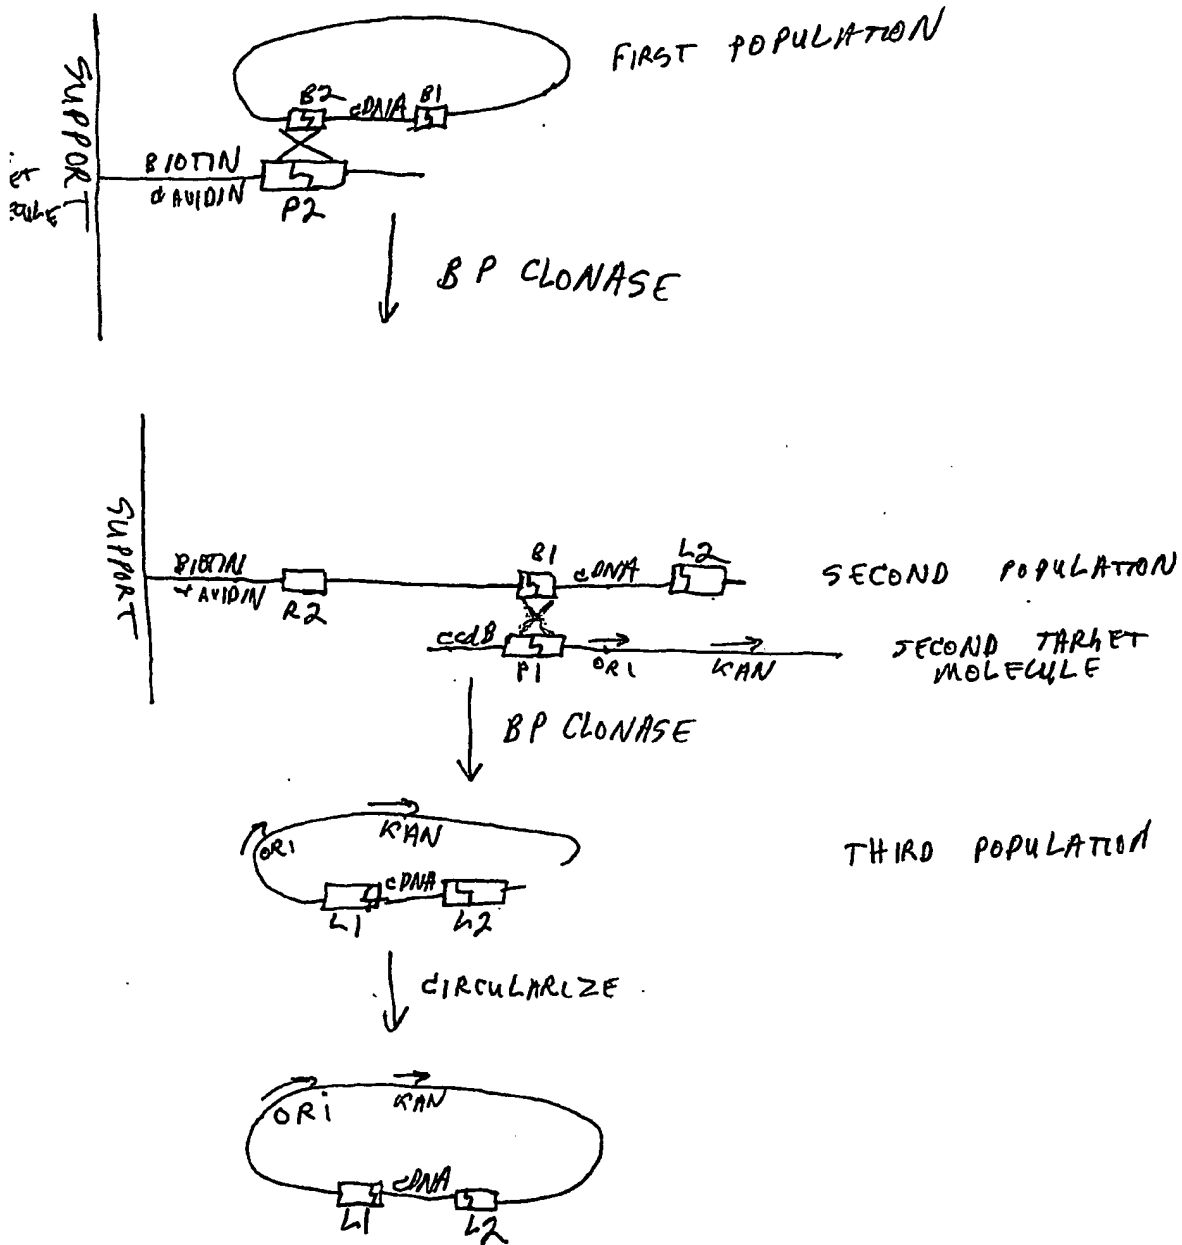 FIRST POPULATION
SUPPORT
B2 cDNA B1
BIOTIN
AVIDIN
P2
BP CLONASE
SUPPORT
BIOTIN
AVIDIN
R2
B1 cDNA L2
SECOND POPULATION
ccdB P1 ORI KAN
SECOND TARGET
MOLECULE
BP CLONASE
ORI KAN
L1 cDNA L2
THIRD POPULATION
CIRCULARIZE
ORi KAN
L1 cDNA L2